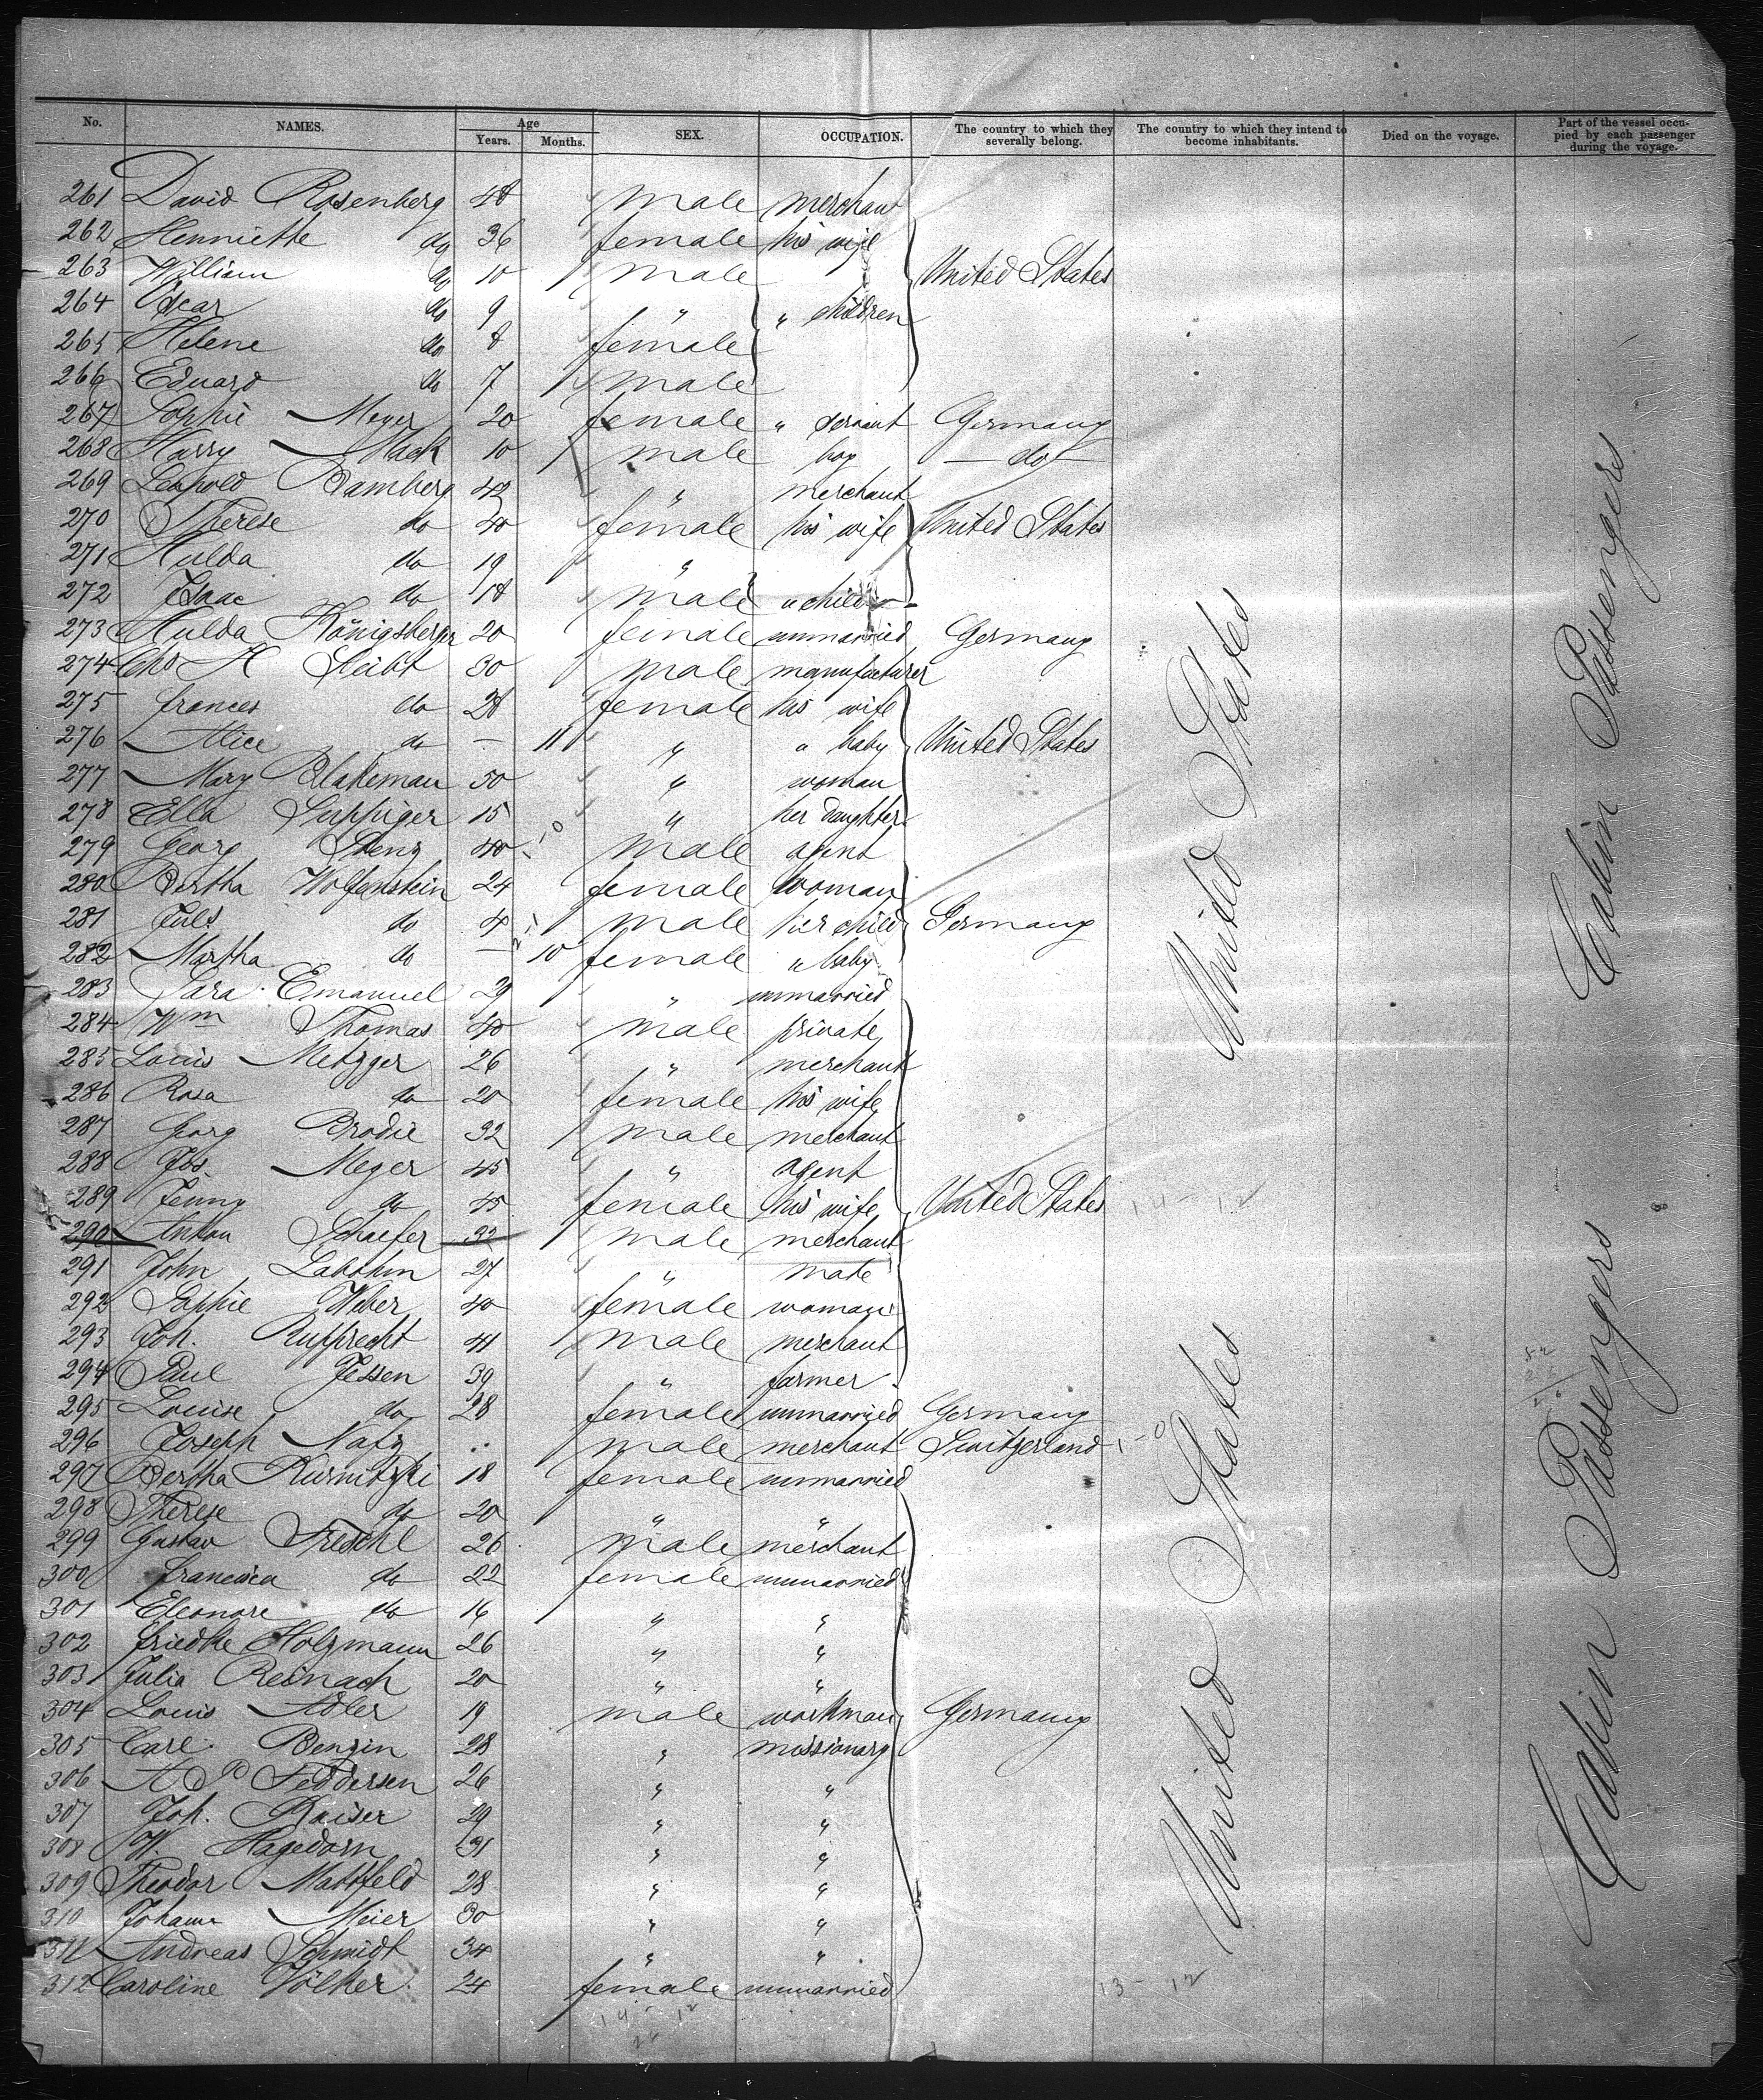 No. NAMES. Age Years. Months. SEX. OCCUPATION. The country to which they severally belong. The country to which they intend to become inhabitants. Died on the voyage. Part of the vessel occupied by each passenger during the voyage.
261 David Rosenberg 48 male merchant
262 Henriette do 36 female his wife
263 William do 10 male United States
264 Oscar do 9 " " children
265 Helene do 8 female
266 Eduard do 7 male
267 Sophie Meyer 20 female " servant Germany
268 Harry Mack 10 male boy do
269 Leopold Bamberg 42 " merchant
270 Therese do 40 female his wife United States
271 Hulda do 19 "
272 Isaac do 18 male " child
273 Hulda Königsberger 20 female unmarried Germany
274 Chs A 30 male manufacturer
275 frances do 28 female his wife
276 Alice do — 11 " " baby United States
277 Mary Blakeman 50 " woman
278 Ella Suppiger 15 " her daughter
279 Georg Stenz 40 male agent
280 Bertha Wolfenstein 24 female woman
281 Juls do 4 male her child Germany
282 Martha do — 10 female " baby
283 Sara Emanuel 29 " unmarried
284 Wm Thomas 40 male private
285 Louis Metzger 26 " merchant
286 Rosa do 20 female his wife
287 Georg Brodie 32 male merchant
288 Jos. Meyer 45 " agent
289 Jenny do 45 female his wife United States 14 12
290 Anton Schaefer 32 male merchant
291 John 27 " mate
292 Sophie Weber 40 female woman
293 Joh. Rupprecht 41 male merchant
294 Paul Jessen 39 " farmer
295 Louise do 28 female unmarried Germany
296 Joseph Nafz .. male merchant Switzerland
297 Bertha Kurnitzki 18 female unmarried
298 Therese do 20 " "
299 Gustav Treschl 26 male merchant
300 francisca do 22 female unmarried
301 Eleonore do 16 " "
302 friedke Holzmann 26 " "
303 Julia Reinach 20 " "
304 Louis Adler 19 male workman Germany
305 Carl Benzin 28 " missionary
306 A P Feddersen 26 " "
307 Joh. Kaiser 29 " "
308 W. Hagedorn 31 " "
309 Theodor Mattfeld 28 " "
310 Johann Meier 30 " "
311 Andreas Schmidt 34 " "
312 Caroline Völker 24 female unmarried 13 - 12
14 - 12
United States
United States
Cabin Passengers
Cabin Passengers